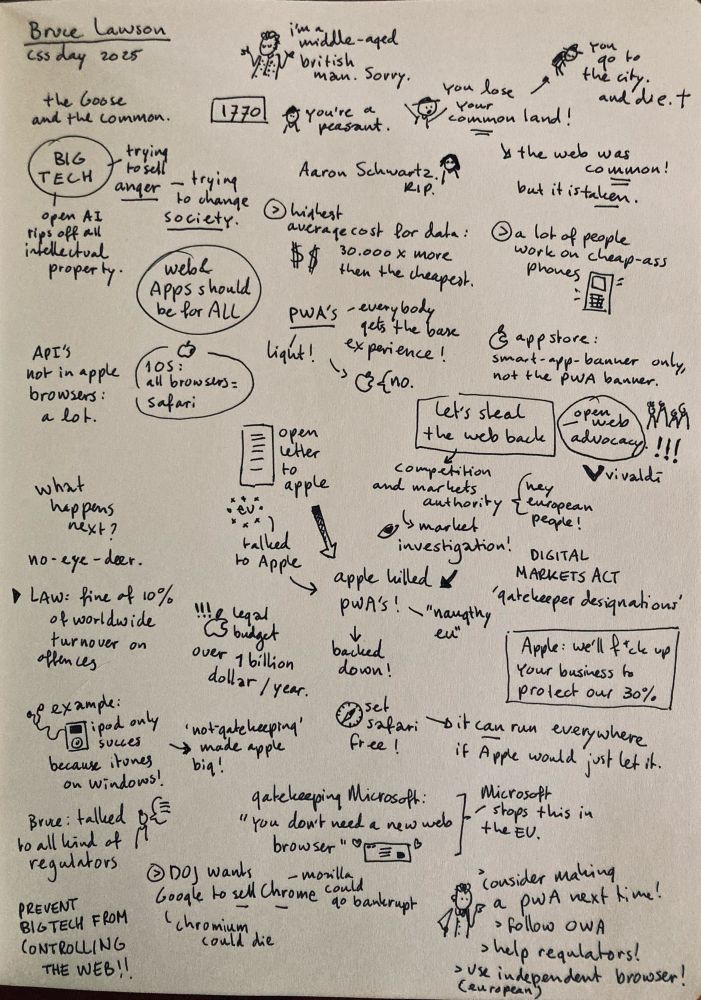 Bruce Lawson
CSS day 2025
i'm a
middle-aged
british
man. Sorry.
the Goose
and the common.
1770
you're a
peasant.
You lose
your
common land!
You
go to
the city.
and die. †
BIG
TECH
trying
to sell
anger
trying
to change
society.
open AI
rips off all
intellectual
property.
Aaron Schwartz.
R.I.P.
the web was
common!
but it is taken.
highest
average cost for data:
$ $
30.000 x more
then the cheapest.
a lot of people
work on cheap-ass
phones
web &
Apps should
be for ALL
PWA's
everybody
gets the base
experience!
light!
no.
app store:
smart-app-banner only,
not the PWA banner.
API's
not in apple
browsers:
a lot.
iOS:
all browsers =
safari
Let's steal
the web back
open
web
advocacy.
!!!
vivaldi
open
letter
to
apple
competition
and markets
authority
hey
european
people!
market
investigation!
what
happens
next?
no-eye-deer.
EU
talked
to Apple
apple killed
PWA's!
"naugthy
eu"
backed
down!
DIGITAL
MARKETS ACT
'gatekeeper designations'
LAW: fine of 10%
of worldwide
turnover on
offences
!!!
legal
budget
over 1 billion
dollar/year.
Apple: we'll f*ck up
your business to
protect our 30%
example:
ipod only
succes
because itunes
on windows!
'not-gatekeeping'
made apple
big!
set
safari
free!
it can run everywhere
if Apple would just let it.
Bruce: talked
to all kind of
regulators
gatekeeping Microsoft:
"you don't need a new web
browser"
Microsoft
stops this in
the EU.
DOJ wants
Google to sell Chrome
mozilla
could
go bankrupt
chromium
could die
PREVENT
BIGTECH FROM
CONTROLLING
THE WEB!!
> consider making
a PWA next time!
> follow OWA
> help regulators!
> use independent browser!
(european)